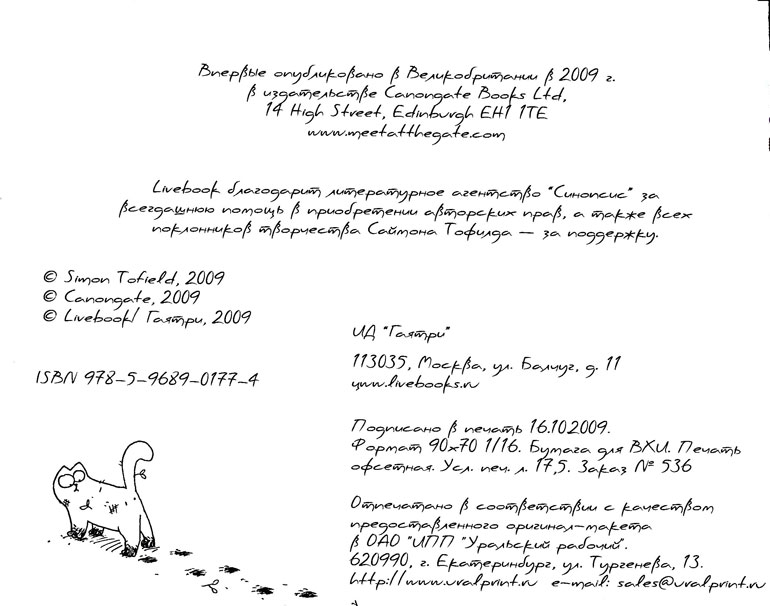 Впервые опубликовано в Великобритании в 2009 г.
в издательстве Canongate Books Ltd,
14 High Street, Edinburgh EH1 1TE
www.meetatthegate.com
Livebook благодарит литературное агентство "Синопсис" за
всегдашнюю помощь в приобретении авторских прав, а также всех
поклонников творчества Саймона Тофилда — за поддержку.
© Simon Tofield, 2009
© Canongate, 2009
© Livebook/ Гаятри, 2009
ISBN 978-5-9689-0177-4
ИД "Гаятри"
113035, Москва, ул. Балчуг, д. 11
www.livebooks.ru
Подписано в печать 16.10.2009.
Формат 90х70 1/16. Бумага для ВХИ. Печать
офсетная. Усл. печ. л. 17,5. Заказ № 536
Отпечатано в соответствии с качеством
предоставленного оригинал-макета
в ОАО "ИПП "Уральский рабочий".
620990, г. Екатеринбург, ул. Тургенева, 13.
http://www.uralprint.ru e-mail: sales@uralprint.ru